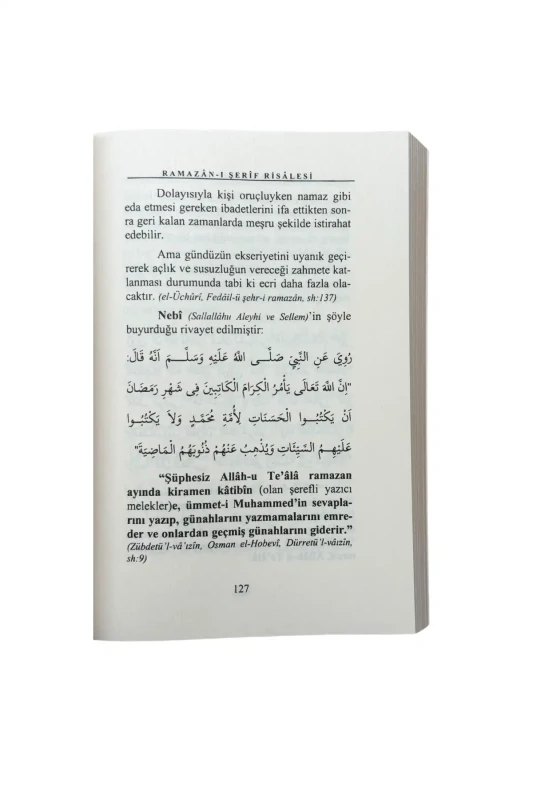 RAMAZÂN-I ŞERÎF RİSÂLESİ
Dolayısıyla kişi oruçluyken namaz gibi
eda etmesi gereken ibadetlerini ifa ettikten son-
ra geri kalan zamanlarda meşru şekilde istirahat
edebilir.
Ama gündüzün ekseriyetini uyanık geçi-
rerek açlık ve susuzluğun vereceği zahmete kat-
lanması durumunda tabi ki ecri daha fazla ola-
caktır. (el-Üchûrî, Fedâil-ü şehr-i ramazân, sh:137)
Nebî (Sallallâhu Aleyhi ve Sellem)'in şöyle
buyurduğu rivayet edilmiştir:
رُوِيَ عَنِ النَّبِيِّ صَلَّى اللهُ عَلَيْهِ وَسَلَّمَ أَنَّهُ قَالَ:
"اِنَّ اللهَ تَعَالَى يَأْمُرُ الْكِرَامَ الْكَاتِبِينَ فِى شَهْرِ رَمَضَانَ
اَنْ يَكْتُبُوا الْحَسَنَاتِ لِأُمَّةِ مُحَمَّدٍ وَلاَ يَكْتُبُوا
عَلَيْهِمُ السَّيِّئَاتِ وَيُذْهِبُ عَنْهُمْ ذُنُوبَهُمُ الْمَاضِيَةَ"
“Şüphesiz Allâh-u Te'âlâ ramazan
ayında kiramen kâtibîn (olan şerefli yazıcı
melekler)e, ümmet-i Muhammed'in sevapla-
rını yazıp, günahlarını yazmamalarını emre-
der ve onlardan geçmiş günahlarını giderir.”
(Zübdetü'l-vâ'ızîn, Osman el-Hobevî, Dürretü'l-vâızîn,
sh:9)
127